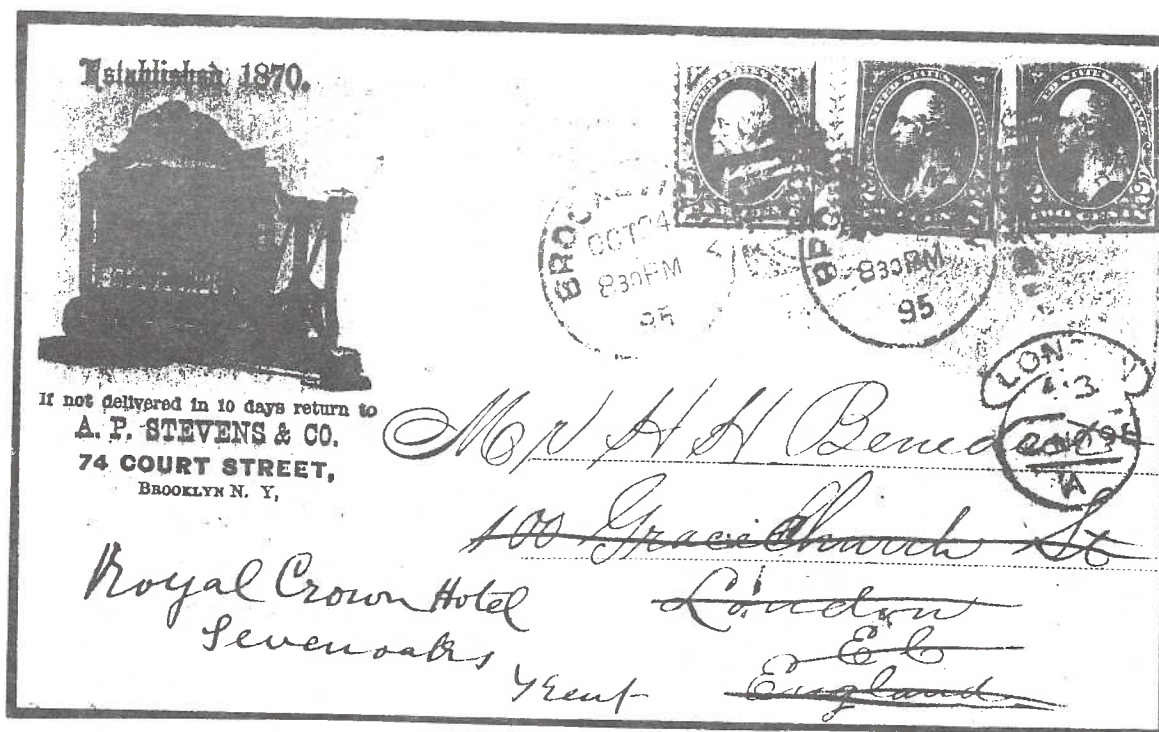 Established 1870.
If not delivered in 10 days return to
A. P. STEVENS & CO.
74 COURT STREET,
BROOKLYN N. Y,
BROOKLYN
OCT 24
830PM
95
BRO
830PM
95
TWO CENTS
LONDON
95
A
Mr H H Benedict
100 GraceChurch St
London
E C
England
Royal Crown Hotel
Sevenoaks
Kent